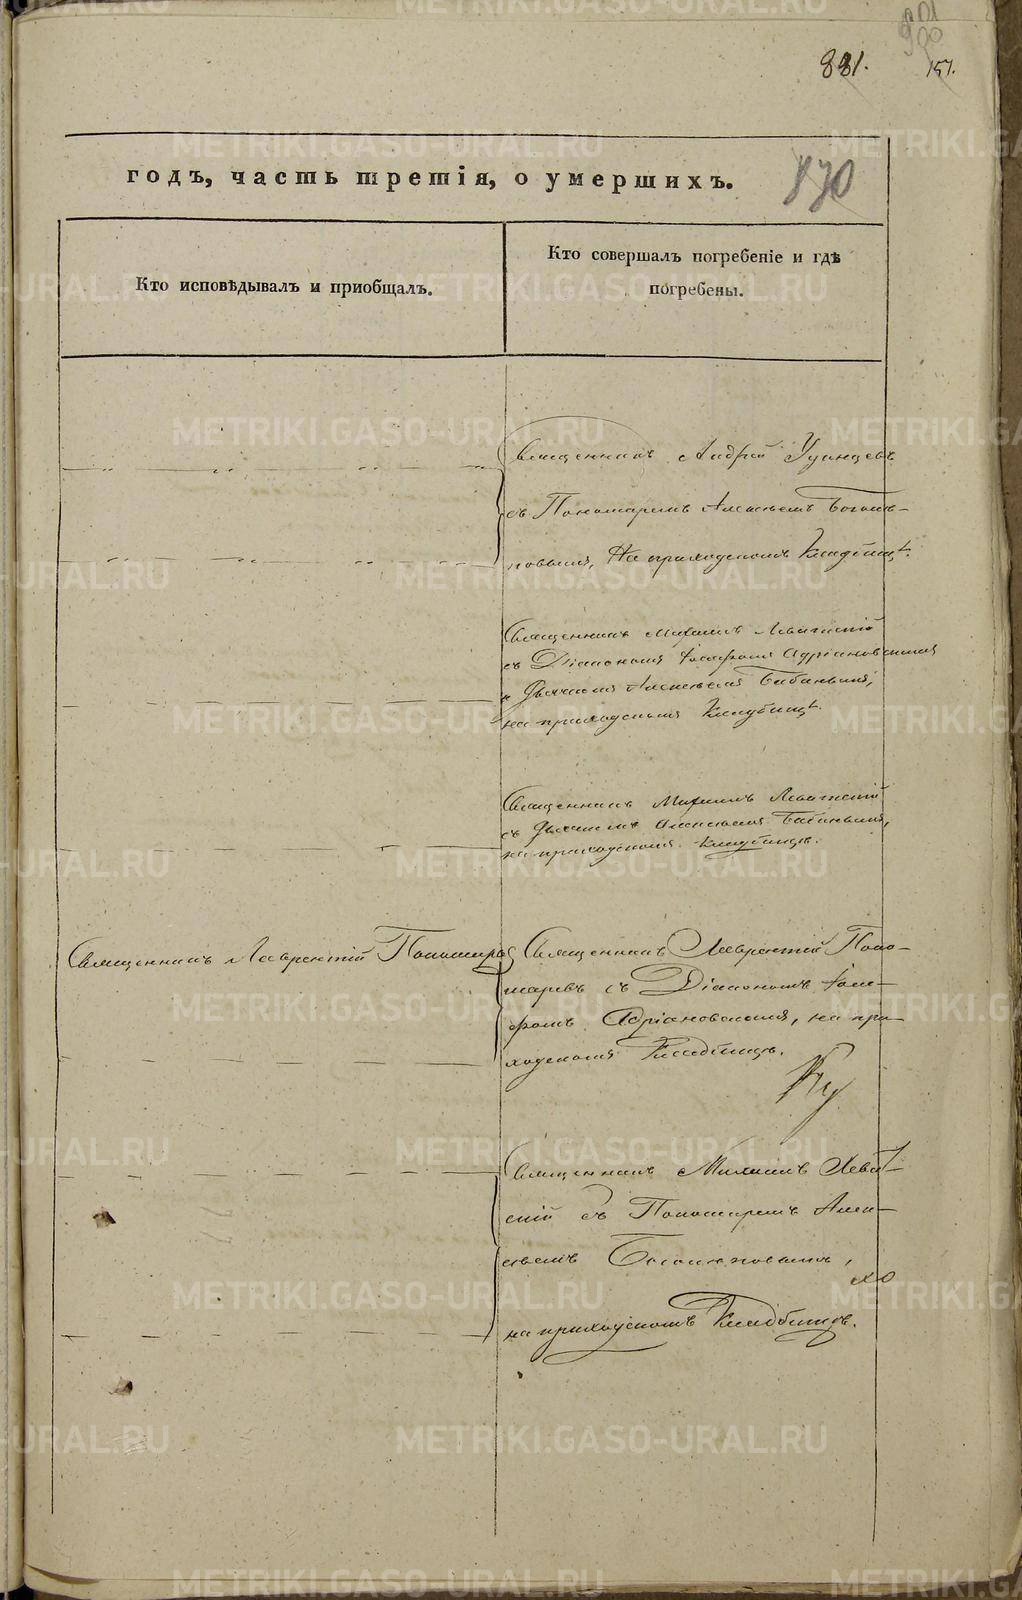 881.
157.
годъ, часть третія, о умершихъ.
870
Кто исповѣдывалъ и приобщалъ.
Кто совершалъ погребеніе и гдѣ
погребены.
Священникъ Андрей
съ Пономаремъ Алексѣемъ
на приходскомъ Кладбищѣ.
Священникъ Михаилъ Левитскій
съ Діакономъ Іоасафомъ Адріановскимъ
и Дьячкомъ Алексѣемъ Бабинымъ,
на приходскомъ Кладбищѣ.
Священникъ Михаилъ Левитскій
съ Дьячкомъ Алексѣемъ Бабинымъ,
на приходскомъ Кладбищѣ.
Священникъ Лаврентій Пономаревъ
Священникъ Лаврентій Поно-
маревъ съ Діакономъ Іоаса-
фомъ Адріановскимъ, на при-
ходскомъ Кладбищѣ.
Священникъ Михаилъ Левит-
скій съ Пономаремъ Алек-
сѣемъ
на приходскомъ Кладбищѣ.
METRIKI.GASO-URAL.RU